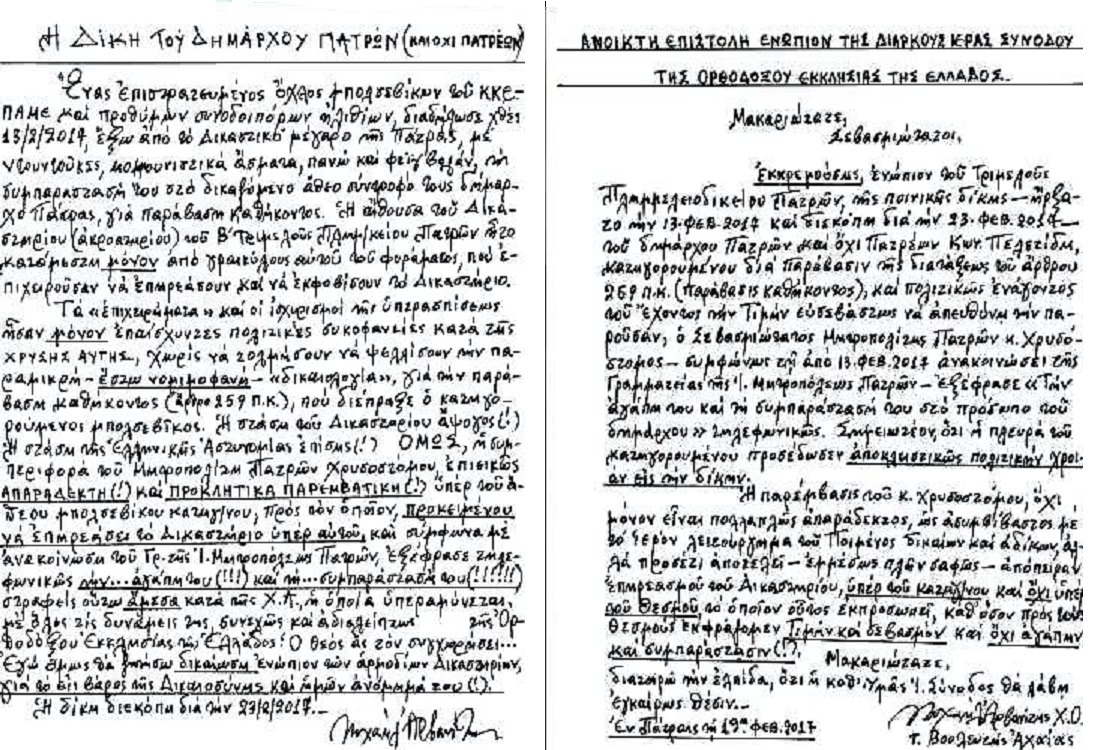 Η ΔΙΚΗ ΤΟΥ ΔΗΜΑΡΧΟΥ ΠΑΤΡΩΝ (ΚΑΙ ΟΧΙ ΠΑΤΡΕΩΝ)
Ἕνας ἐπιστρατευμένος ὄχλος μπολσεβίκων τοῦ ΚΚΕ-
ΠΑΜΕ καί προθύμων συνοδοιπόρων ἠλιθίων, διαδήλωσε χθές
13/2/2017, ἔξω ἀπό τό Δικαστικό μέγαρο τῆς Πάτρας, μέ
ντουντοῦκες, κομμουνιστικά ἄσματα, πανώ και φέιγ βολάν, τήν
συμπαράστασή του στό δικαζόμενο ἄθεο σύντροφό τους δήμαρ-
χο Πάτρας, γιά παράβαση καθήκοντος. Ἡ αἴθουσα τοῦ Δικα-
στηρίου (ἀκροατηρίου) τοῦ Β' Τριμελοῦς Πλημ/κείου Πατρῶν ἦτο
κατάμεστη μόνον ἀπό γραικύλους αὐτοῦ τοῦ φυράματος, πού ἐ-
πιχειροῦσαν νά ἐπηρεάσουν καί νά ἐκφοβίσουν τό Δικαστήριο.
Τά «ἐπιχειρήματα» καί οἱ ἰσχυρισμοί τῆς ὑπερασπίσεως
ἦσαν μόνον ἐπαίσχυντες πολιτικές συκοφαντίες κατά τῆς
ΧΡΥΣΗΣ ΑΥΓΗΣ, χωρίς νά τολμήσουν νά ψελλίσουν τήν πα-
ραμικρή - ἔστω νομιμοφανῆ - «δικαιολογία», γιά τήν παρά-
βαση καθήκοντος (ἄρθρο 259 Π.Κ.), πού διέπραξε ὁ κατηγο-
ρούμενος μπολσεβίκος. Ἡ στάση τοῦ Δικαστηρίου ἄψογος(!)
Ἡ στάση τῆς Ἑλληνικῆς Ἀστυνομίας ἐπίσης(!) ΟΜΩΣ, ἡ συμ-
περιφορά τοῦ Μητροπολίτη Πατρῶν Χρυσοστόμου, ἐπιεικῶς
ΑΠΑΡΑΔΕΚΤΗ(!) καί ΠΡΟΚΛΗΤΙΚΑ ΠΑΡΕΜΒΑΤΙΚΗ(!) ὑπέρ τοῦ ἀ-
θέου μπολσεβίκου κατηγ/νου, πρός τόν ὁποῖον, προκειμένου
νά ἐπηρεάσει τό Δικαστήριο ὑπέρ αὐτοῦ, καί σύμφωνα μέ
ἀνακοίνωση τοῦ Γρ. τῆς Ἱ. Μητροπόλεως Πατρῶν, ἐξέφρασε τηλε-
φωνικῶς τήν... ἀγάπη του (!!!) καί τή... συμπαράστασή του (!!!!!!)
στραφείς οὕτω ἄμεσα κατά τῆς Χ.Α., ἡ ὁποία ὑπεραμύνεται,
μέ ὅλες τίς δυνάμεις της, συνεχῶς καί ἀδιαλείπτως τῆς Ὀρ-
θοδόξου Ἐκκλησίας τῆς Ἑλλάδος! Ὁ Θεός ἄς τόν συγχωρήσει...
Ἐγώ ὅμως θά ζητήσω δικαίωση ἐνώπιον τῶν ἁρμοδίων Δικαστηρίων,
γιά τό εἰς βάρος τῆς Δικαιοσύνης καί ἡμῶν ἀνόμημά του (!).
Ἡ δίκη διεκόπη διά τήν 23/2/2017.-
Μιχαήλ Ἀρβανίτης
ΑΝΟΙΚΤΗ ΕΠΙΣΤΟΛΗ ΕΝΩΠΙΟΝ ΤΗΣ ΔΙΑΡΚΟΥΣ ΙΕΡΑΣ ΣΥΝΟΔΟΥ
ΤΗΣ ΟΡΘΟΔΟΞΟΥ ΕΚΚΛΗΣΙΑΣ ΤΗΣ ΕΛΛΑΔΟΣ.-
Μακαριώτατε,
Σεβασμιώτατοι,
Ἐκκρεμούσης, ἐνώπιον τοῦ Τριμελοῦς
Πλημμελειοδικείου Πατρῶν, τῆς ποινικῆς δίκης - ἤρξα-
το τήν 13. ΦΕΒ. 2017 καί διεκόπη διά τήν 23. ΦΕΒ. 2017 -
τοῦ δημάρχου Πατρῶν καί ὄχι Πατρέων Κων. Πελετίδη,
κατηγορουμένου διά παράβασιν τῆς διατάξεως τοῦ ἄρθρου
259 Π.Κ. (παράβασις καθήκοντος), καί πολιτικῶς ἐνάγοντος
τοῦ ἔχοντος τήν Τιμήν εὐσεβάστως νά ἀπευθύνῃ τήν πα-
ροῦσαν, ὁ Σεβασμιώτατος Μητροπολίτης Πατρῶν κ. Χρυσό-
στομος - συμφώνως τῇ ἀπό 13. ΦΕΒ. 2017 ἀνακοινώσει τῆς
Γραμματείας τῆς Ἱ. Μητροπόλεως Πατρῶν - ἐξέφρασε «Τήν
ἀγάπη του καί τή συμπαράστασή του στό πρόσωπο τοῦ
δημάρχου» τηλεφωνικῶς. Σημειωτέον, ὅτι ἡ πλευρά τοῦ
κατηγορουμένου προσέδωσεν ἀποκλειστικῶς πολιτικήν χροι-
άν εἰς τήν δίκην.
Ἡ παρέμβασις τοῦ κ. Χρυσοστόμου, ὄχι
μόνον εἶναι πολλαπλῶς ἀπαράδεκτος, ὡς ἀσυμβίβαστος μέ
τό ἱερόν λειτούργημα τοῦ Ποιμένος δικαίων καί ἀδίκων, ἀλ-
λά προσέτι ἀποτελεῖ - ἐμμέσως πλήν σαφῶς - ἀπόπειραν
ἐπηρεασμοῦ τοῦ Δικαστηρίου, ὑπέρ τοῦ κατηγ/νου καί ὄχι ὑπέρ
τοῦ Θεσμοῦ τό ὁποῖον οὗτος ἐκπροσωπεῖ, καθ' ὅσον πρός τούς
Θεσμούς ἐκφράζομεν Τιμήν καί σεβασμόν καί ὄχι ἀγάπην
καί συμπαράστασιν(!).
Μακαριώτατε,
διατηρῶ τήν ἐλπίδα, ὅτι ἡ καθ' Ὑμᾶς Ἱ. Σύνοδος θά λάβῃ
ἐγκαίρως θέσιν.-
Ἐν Πάτραις τῇ 19ῃ ΦΕΒ. 2017
Μιχαήλ Ἀρβανίτης Χ.Ο.
τ. Βουλευτής Ἀχαΐας